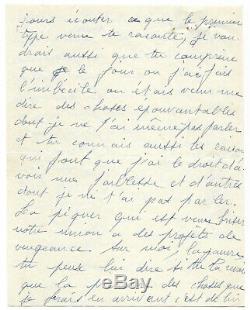 jours écouter ce que le premier
type venu te raconte, je vou
drais aussi que tu comprenne
que le jour ou j'ai fais
l'imbécile on étais venu me
dire des choses épouvantables
dont je ne t'ai même pas parler
et tu connais aussi les raisons
qui font que j'ai le droit d'a
voir une faiblesse et d'autres
dont je ne t'ai pas parler.
La qui est venue briser
notre union a des projets de
vengeance sur moi, la pauvre
tu peux lui dire si tu la vois
que la des choses que
je ferais en arrivant c'est de lui